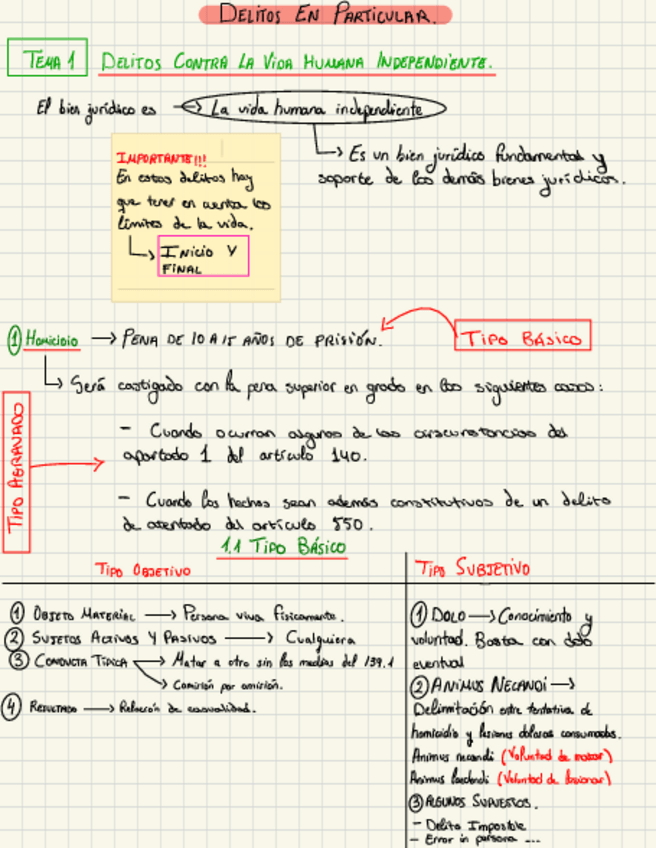 DELITOS EN PARTICULAR.
TEMA 1 DELITOS CONTRA LA VIDA HUMANA INDEPENDIENTE.
El bien jurídico es → La vida humana independiente
→ Es un bien jurídico fundamental y
soporte de los demás bienes jurídicos.
IMPORTANTE!!!
En estos delitos hay
que tener en cuenta los
límites de la vida.
→ INICIO Y
FINAL
① Homicidio → PENA DE 10 A 15 AÑOS DE PRISIÓN.
TIPO BÁSICO
→ Será castigado con la pena superior en grado en los siguientes casos:
TIPO AGRAVADO
- Cuando ocurran algunos de las circunstancias del
apartado 1 del artículo 140.
- Cuando los hechos sean además constitutivos de un delito
de atentado del artículo 550.
1.1 TIPO BÁSICO
TIPO OBJETIVO
① OBJETO MATERIAL → Persona viva físicamente.
② SUJETOS ACTIVOS Y PASIVOS → Cualquiera
③ CONDUCTA TÍPICA → Matar a otro sin los medios del 139.1
→ Comisión por omisión.
④ RESULTADO → Relación de causalidad.
TIPO SUBJETIVO
① DOLO → Conocimiento y
voluntad. Basta con dolo
eventual
② ANIMUS NECANDI →
Delimitación entre tentativa de
homicidio y lesiones dolosas consumadas.
Animus necandi (Voluntad de matar)
Animus laedendi (Voluntad de lesionar)
③ ALGUNOS SUPUESTOS.
- Delito Imposible
- Error in persona ...